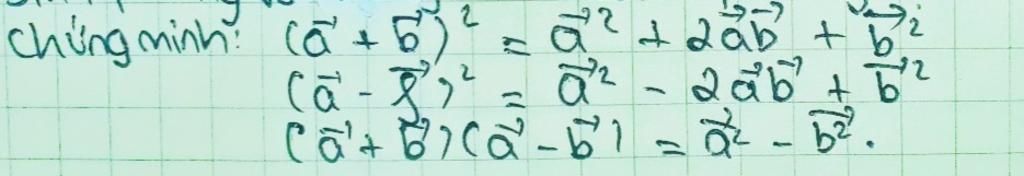 Chứng minh: (a⃗ + b⃗)² = a⃗² + 2a⃗b⃗ + b⃗²
(a⃗ - b⃗)² = a⃗² - 2a⃗b⃗ + b⃗²
(a⃗ + b⃗)(a⃗ - b⃗) = a⃗² - b⃗².